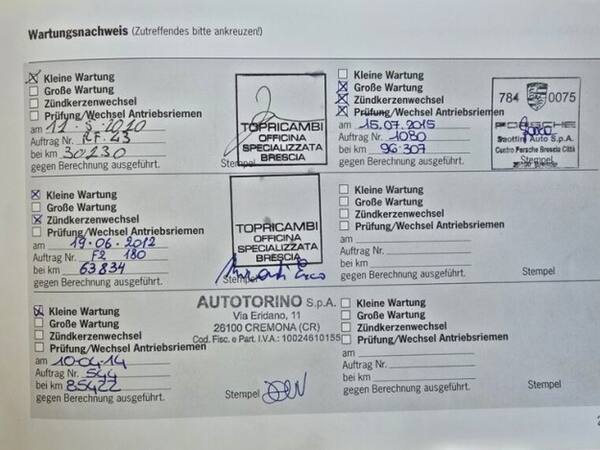 Wartungsnachweis (Zutreffendes bitte ankreuzen!)
Kleine Wartung
Große Wartung
Zündkerzenwechsel
Prüfung/Wechsel Antriebsriemen
am 11-5-2010
Auftrag Nr. RF.43
bei km 30230
gegen Berechnung ausgeführt.
Stempel
TOPRICAMBI
OFFICINA
SPECIALIZZATA
BRESCIA
Kleine Wartung
Große Wartung
Zündkerzenwechsel
Prüfung/Wechsel Antriebsriemen
am 15.07.2015
Auftrag Nr. 1080
bei km 96.307
gegen Berechnung ausgeführt.
784 0075
PORSCHE
Saottini Auto S.p.A.
Centro Porsche Brescia Città
Stempel
Kleine Wartung
Große Wartung
Zündkerzenwechsel
Prüfung/Wechsel Antriebsriemen
am 19.06.2012
Auftrag Nr. F2 180
bei km 63834
gegen Berechnung ausgeführt.
Stempel
TOPRICAMBI
OFFICINA
SPECIALIZZATA
BRESCIA
Kleine Wartung
Große Wartung
Zündkerzenwechsel
Prüfung/Wechsel Antriebsriemen
am
Auftrag Nr.
bei km
gegen Berechnung ausgeführt.
Stempel
Kleine Wartung
Große Wartung
Zündkerzenwechsel
Prüfung/Wechsel Antriebsriemen
am 10.04.14
Auftrag Nr. 544
bei km 85422
gegen Berechnung ausgeführt.
Stempel
AUTOTORINO S.p.A.
Via Eridano, 11
26100 CREMONA (CR)
Cod. Fisc. e Part. I.V.A.: 10024610155
Kleine Wartung
Große Wartung
Zündkerzenwechsel
Prüfung/Wechsel Antriebsriemen
am
Auftrag Nr.
bei km
gegen Berechnung ausgeführt.
Stempel